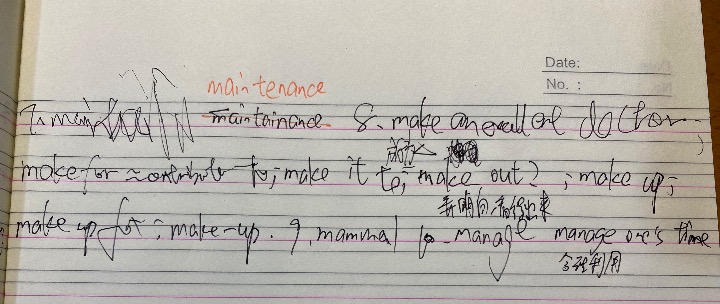 Date:
No. :
maintenance
7. maintain maintainance 8. make an excellent doctor;
make for ≈ contribute to; make it to; make out? ; make up;
弄明白/看得出来
make up for ; make-up. 9. mammal 10. manage manage one's time
合理利用